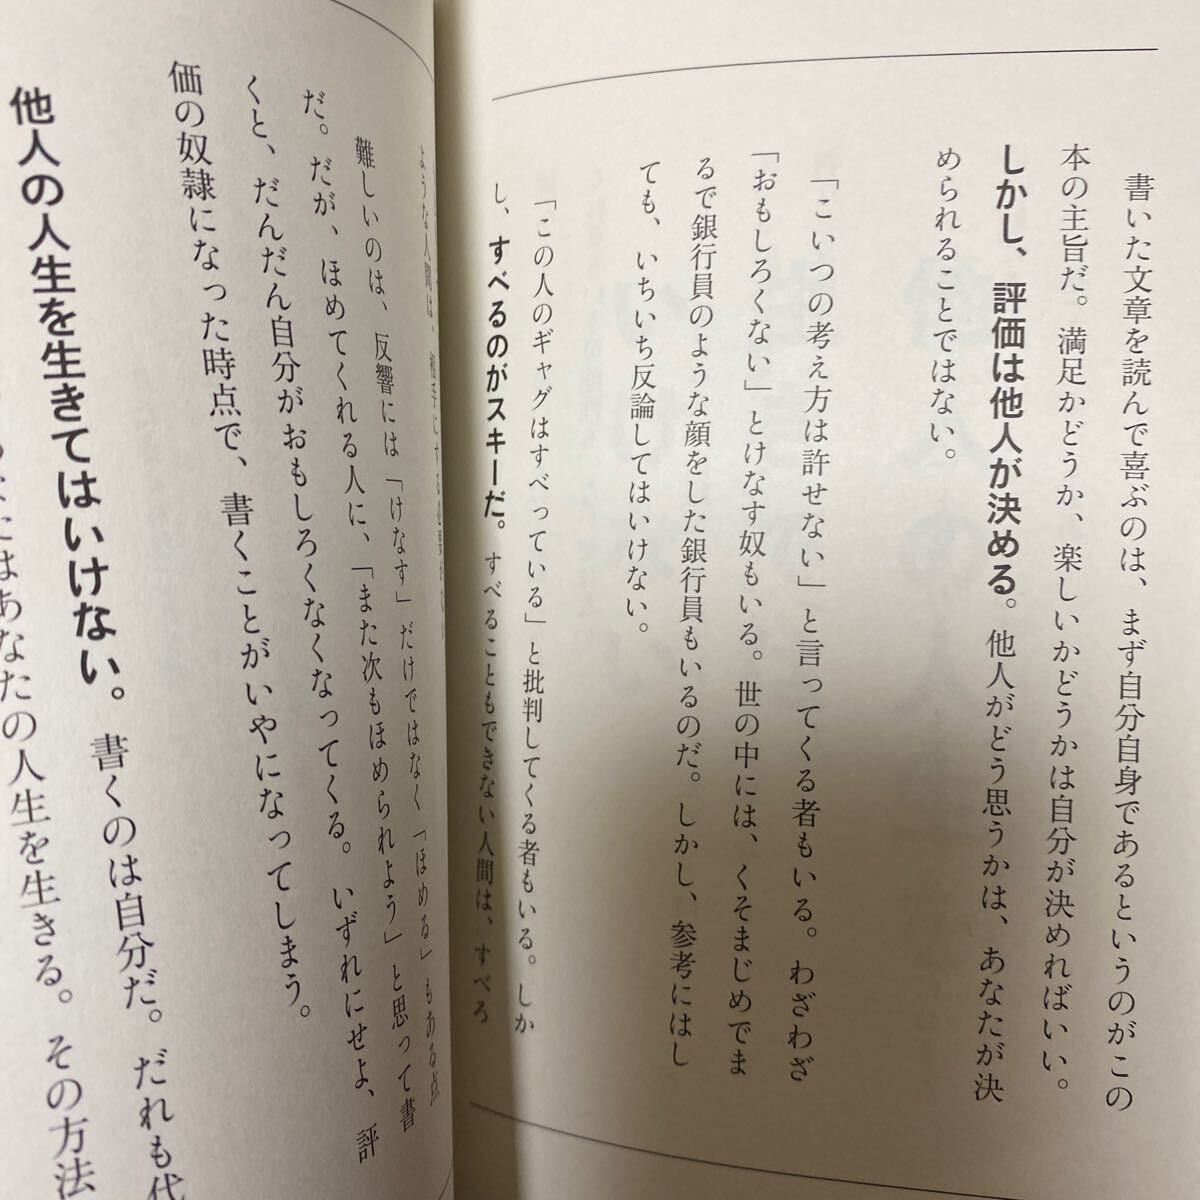 書いた文章を読んで喜ぶのは、まず自分自身であるというのがこの
本の主旨だ。満足かどうか、楽しいかどうかは自分が決めればいい。
しかし、評価は他人が決める。他人がどう思うかは、あなたが決
められることではない。
「こいつの考え方は許せない」と言ってくる者もいる。わざわざ
「おもしろくない」とけなす奴もいる。世の中には、くそまじめでま
るで銀行員のような顔をした銀行員もいるのだ。しかし、参考にはし
ても、いちいち反論してはいけない。
「この人のギャグはすべっている」と批判してくる者もいる。しか
し、すべるのがスキーだ。すべることもできない人間は、すべろ
ような人間は、相手にする必要が
難しいのは、反響には「けなす」だけではなく「ほめる」もある点
だ。だが、ほめてくれる人に、「また次もほめられよう」と思って書
くと、だんだん自分がおもしろくなくなってくる。いずれにせよ、評
価の奴隷になった時点で、書くことがいやになってしまう。
他人の人生を生きてはいけない。書くのは自分だ。だれも代
にはあなたの人生を生きる。その方法